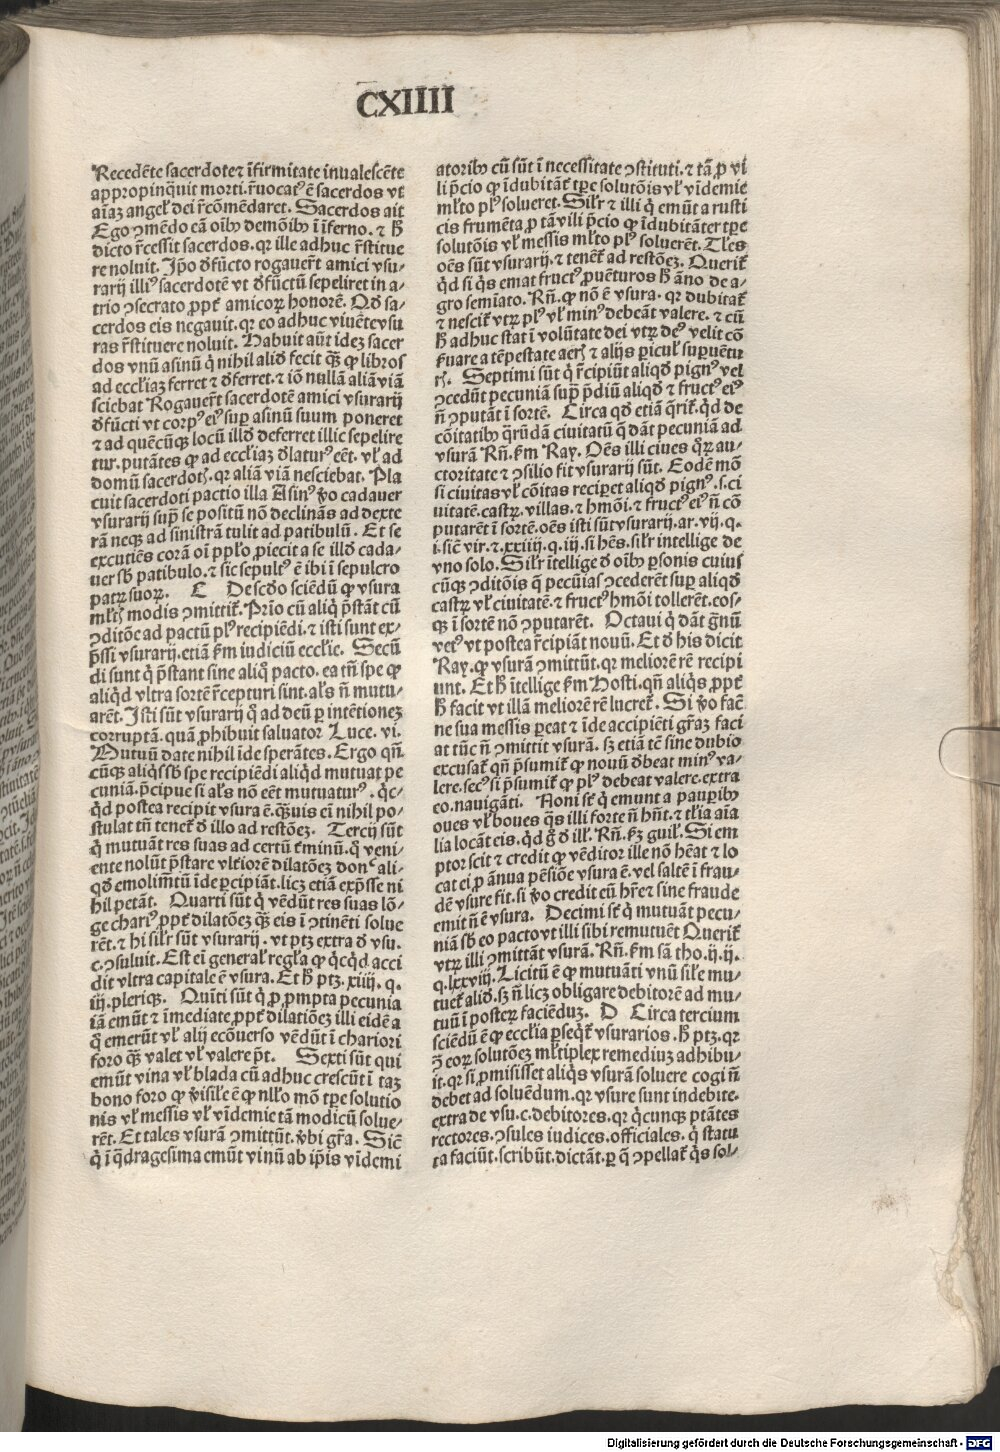 CXIIII
Recedēte sacerdote ⁊ īfirmitate inualescēte
appropinq̄uit morti. r̄uocatꝰ ē sacerdos vt
aīaꝫ angeł dei r̄cōmēdaret. Sacerdos ait
Ego ꝯmēdo eā oībꝫ demōibꝫ ī īferno. ⁊ ħ
dicto r̄cessit sacerdos. qꝛ ille adhuc r̄stitue
re noluit. Ip̄o d̄fūcto rogauer̄t amici vsu-
rarij illiꝰ sacerdotē vt d̄fūctū sepeliret in a-
trio ꝯsecrato ꝓpt̄ amicoꝝ honorē. Qd̄ sa-
cerdos eis negauit. qꝛ eo adhuc viuēte vsu
ras r̄stituere noluit. Habuit aūt ideꝫ sacer
dos vnū asinū q̄ nihil aliđ fecit q̄ꝫ ꝙ libros
ad eccl̄iaꝫ ferret ⁊ d̄ferret. ⁊ iō nullā aliā viā
sciebat Rogauer̄t sacerdotē amici vsurarij
d̄fūcti vt corpꝰ eiꝰ suꝑ asinū suum poneret
⁊ ad quēcūqꝫ locū illđ deferret illic sepelire
tur. putātes ꝙ ad eccl̄iaꝫ d̄laturꝰ eēt. vł ad
domū sacerdotꝭ. qꝛ aliā viā nesciebat. Pla
cuit sacerdoti pactio illa Asinꝰ ꝟo cadauer
vsurarij supͣ se positū nō declinās ad dexte
rā neqꝫ ad sinistrā tulit ad patibulū. Et se
excutiēs corā oī ppl̄o ꝓiecit a se illđ cada-
uer sb̄ patibulo. ⁊ sic sepultꝰ ē ibi ī sepulcro
patꝝ suoꝝ. C Descđo sciēdū ꝙ vsura
młtꝭ modis ꝯmittit̄. Prīo cū aliq̇ p̄stāt cū
ꝯditōe ad pactū plꝰ recipiēdi. ⁊ isti sunt ex-
p̄ssi vsurarij. etiā ẜm iudiciū eccl̄ie. Secū
di sunt q̇ p̄stant sine aliq̊ pacto. ea tn̄ spe ꝙ
aliqđ vltra sortē r̄cepturi sint. als̄ n̄ mutu-
arēt. Isti sūt vsurarij q̄ ad deū ꝑ intētioneꝫ
corruptā. quā ꝓhibuit saluator Luce. vi.
Mutuū date nihil īde sperātes. Ergo qn̄
cūqꝫ aliqs̄ sb̄ spe recipiēdi aliqđ mutuat pe
cuniā. p̄cipue si als̄ nō eēt mutuaturꝰ. q̇c-
q̇d postea recipit vsura ē. q̄ꝫuis ei nihil po-
stulat tn̄ tenet̄ d̄ illo ad restōeꝫ. Tercij sūt
q̇ mutuāt res suas ad certū t̄minū. q̊ veni-
ente nolūt p̄stare vłtiorē dilatōeꝫ donͨ ali-
qđ emolim̄tū īde ꝑcipiāt. licꝫ etiā exp̄sse ni
hil petāt. Quarti sūt q̇ vēdūt res suas lō-
ge chariꝰ ꝓpt̄ dilatōeꝫ q̄ꝫ eis ī ꝯtinēti solue
rēt. ⁊ hi silr̄ sūt vsurarij. vt ptꝫ extra d̄ vsu.
c. ꝯsuluit. Est ei general̄ regl̄a ꝙ q̇cq̇d acci
dit vltra capitale ē vsura. Et ħ ptꝫ. xiiij. q.
iij. plerīqꝫ. Quīti sūt q̇ ꝓ ꝓmpta pecunia
iā emūt ⁊ īmediate ꝓpt̄ dilatiōeꝫ illi eidē a
q̊ emerūt vł alij ecōuerso vēdūt ī chariori
foro q̄ꝫ valet vł valere p̄t. Sexti sūt qui
emūt vina vł blada cū adhuc crescūt ī taꝫ
bono foro ꝙ ꝟisile ē ꝙ nl̄lo mō tꝑe solutio
nis vł messis vł vīdemie tā modicū solue-
rēt. Et tales vsurā ꝯmittūt. ꝟbi gr̄a. Sic̄
q̇ ī q̄dragesima emūt vinū ab ip̄is vīdemi
atoribꝫ cū sūt ī necessitate ꝯstituti. ⁊ tā ꝓ vi
li p̄cio ꝙ īdubitāt̄ tꝑe solutōis vł vīdemie
młto plꝰ solueret. Silr̄ ⁊ illi q̇ emūt a rusti
cis frumēta. ꝓ tā vili p̄cio ꝙ īdubitāter tꝑe
solutōis vł messis młto plꝰ soluerēt. Tl̄es
oēs sūt vsurarij. ⁊ tenēt̄ ad restōeꝫ. Querit̄
q̇d si q̇s emat fructꝰ ꝓuēturos ħ āno de a-
gro semīato. Rn̄. ꝙ nō ē vsura. qꝛ dubitat̄
⁊ nescit̄ vtꝝ plꝰ vł minꝰ debeāt valere. ⁊ cū
ħ adhuc stat ī volūtate dei vtꝝ deꝰ velit cō
ẜuare a tēpestate aerꝭ ⁊ alijs ꝑicuł supuētu
rꝭ. Septimi sūt q̇ r̄cipiūt aliqđ pignꝰ vel
ꝯcedūt pecuniā supͣ p̄diū aliqđ ⁊ fructꝰ eiꝰ
n̄ ꝯputāt ī sortē. Circa qđ etiā q̄rit̄. q̇d de
cōitatibꝫ q̄rūdā ciuitatū q̄ dāt pecuniā ad
vsurā Rn̄. ẜm Ray. Oēs illi ciues q̊ꝝ au-
ctoritate ⁊ ꝯsilio fit vsurarij sūt. Eodē mō
si ciuitas vł cōitas reciꝑet aliqđ pignꝰ. s. ci
uitatē. castꝝ. villas. ⁊ hmōi. ⁊ fructꝰ eiꝰ n̄ cō
putarēt ī sortē. oēs isti sūt vsurarij. ar. vij. q.
i. sic̄ vir. ⁊. xxiiij. q. iij. si hēs. silr̄ intellige de
vno solo. Silr̄ ītellige d̄ oībꝫ ꝑsonis cuius
cūqꝫ ꝯditōis q̄ pecūias ꝯcederēt suꝑ aliqđ
castꝝ vł ciuitatē. ⁊ fructꝰ hmōi tollerēt. eos-
qꝫ ī sortē nō ꝯputarēt. Octaui q̇ dāt g̊nū
vetꝰ vt postea r̄cipiāt nouū. Et d̄ his dicit
Ray. ꝙ vsurā ꝯmittūt. qꝛ meliorē rē recipi
unt. Et ħ ītellige ẜm Hosti. qn̄ aliqs̄ ꝓpt̄
ħ facit vt illā meliorē rē lucret̄. Si ꝟo fac̄
ne sua messis ꝑeat ⁊ īde accipiēti gr̄aꝫ faci
at tūc n̄ ꝯmittit vsurā. sꝫ etiā tē sine dubio
excusat̄ qn̄ p̄sumit̄ ꝙ nouū d̄beat minꝰ va-
lere. secꝰ si p̄sumit̄ ꝙ plꝰ debeat valere. extra
eo. nauigāti. Noni st̄ q̇ emunt a pauꝑibꝫ
oues vł boues q̄s illi forte n̄ hn̄t. ⁊ tl̄ia aīa
lia locāt eis. q̇d g̊ d̄ ill̄. Rn̄. ẜꝫ guił. Si em
ptor scit ⁊ credit ꝙ vēditor ille nō hēat ⁊ lo
cat ei ꝓ ānua pēsiōe vsura ē. vel saltē ī frau-
dē vsure fit. si ꝟo credit eū hr̄e ⁊ sine fraude
emit n̄ ē vsura. Decimi st̄ q̇ mutuāt pecu-
niā sb̄ eo pacto vt illi sibi remutuēt Querit̄
vtꝝ illi ꝯmittāt vsurā. Rn̄. ẜm sā tho. ij. ij.
q. lxxviij. Licitū ē ꝙ mutuāti vnū sile mu-
tuet̄ aliđ. sꝫ n̄ licꝫ obligare debitorē ad mu-
tuū ī posteꝝ faciēduꝫ. D Circa tercium
sciēdū ē ꝙ eccl̄ia ꝑseqt̄ vsurarios. ħ ptꝫ. qꝛ
ꝯ̄ eoꝝ solutōeꝫ młtiplex remediuꝫ adhibu-
it. qꝛ si ꝓmisisset aliqs̄ vsurā soluere cogi n̄
debet ad soluēdum. qꝛ vsure sunt indebite.
extra de vsu. c. debitores. qꝛ q̇cunqꝫ ptātes
rectores. ꝯsules iudices. officiales. q̇ statu
ta faciūt. scribūt. dictāt. ꝑ q̄ ꝯpellat̄ q̇s sol-
Digitalisierung gefördert durch die Deutsche Forschungsgemeinschaft - DFG